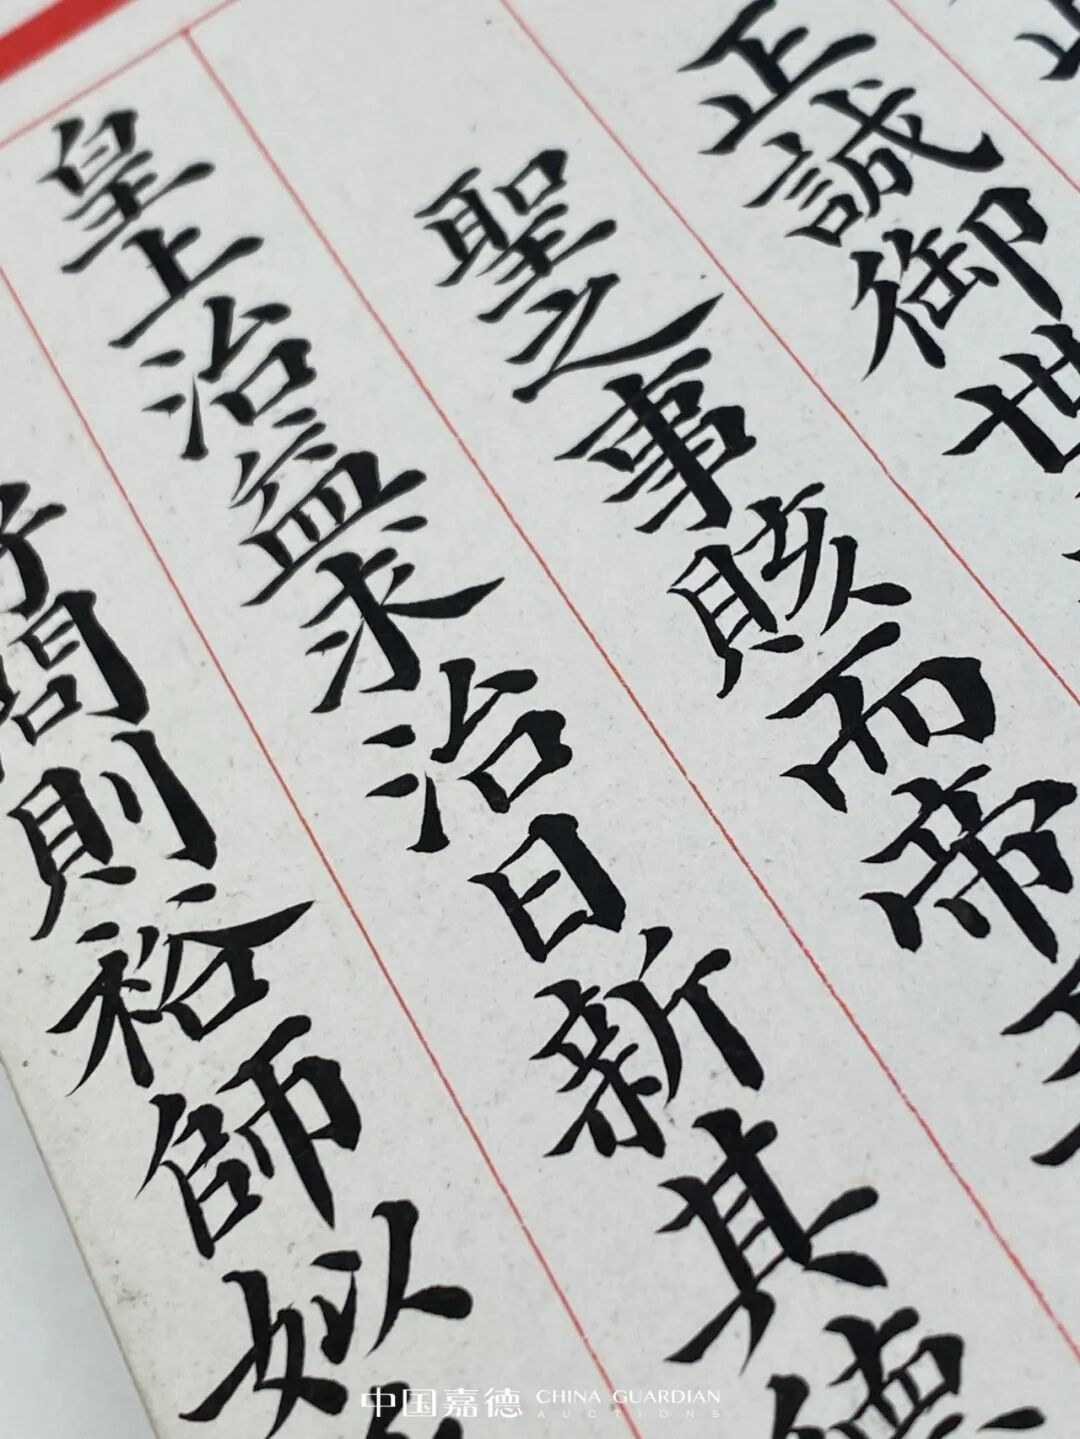 正誠御世
聖之事賅而帝
皇上治益求治日新其德
好問則裕師姒
中国嘉德 CHINA GUARDIAN
AUCTIONS